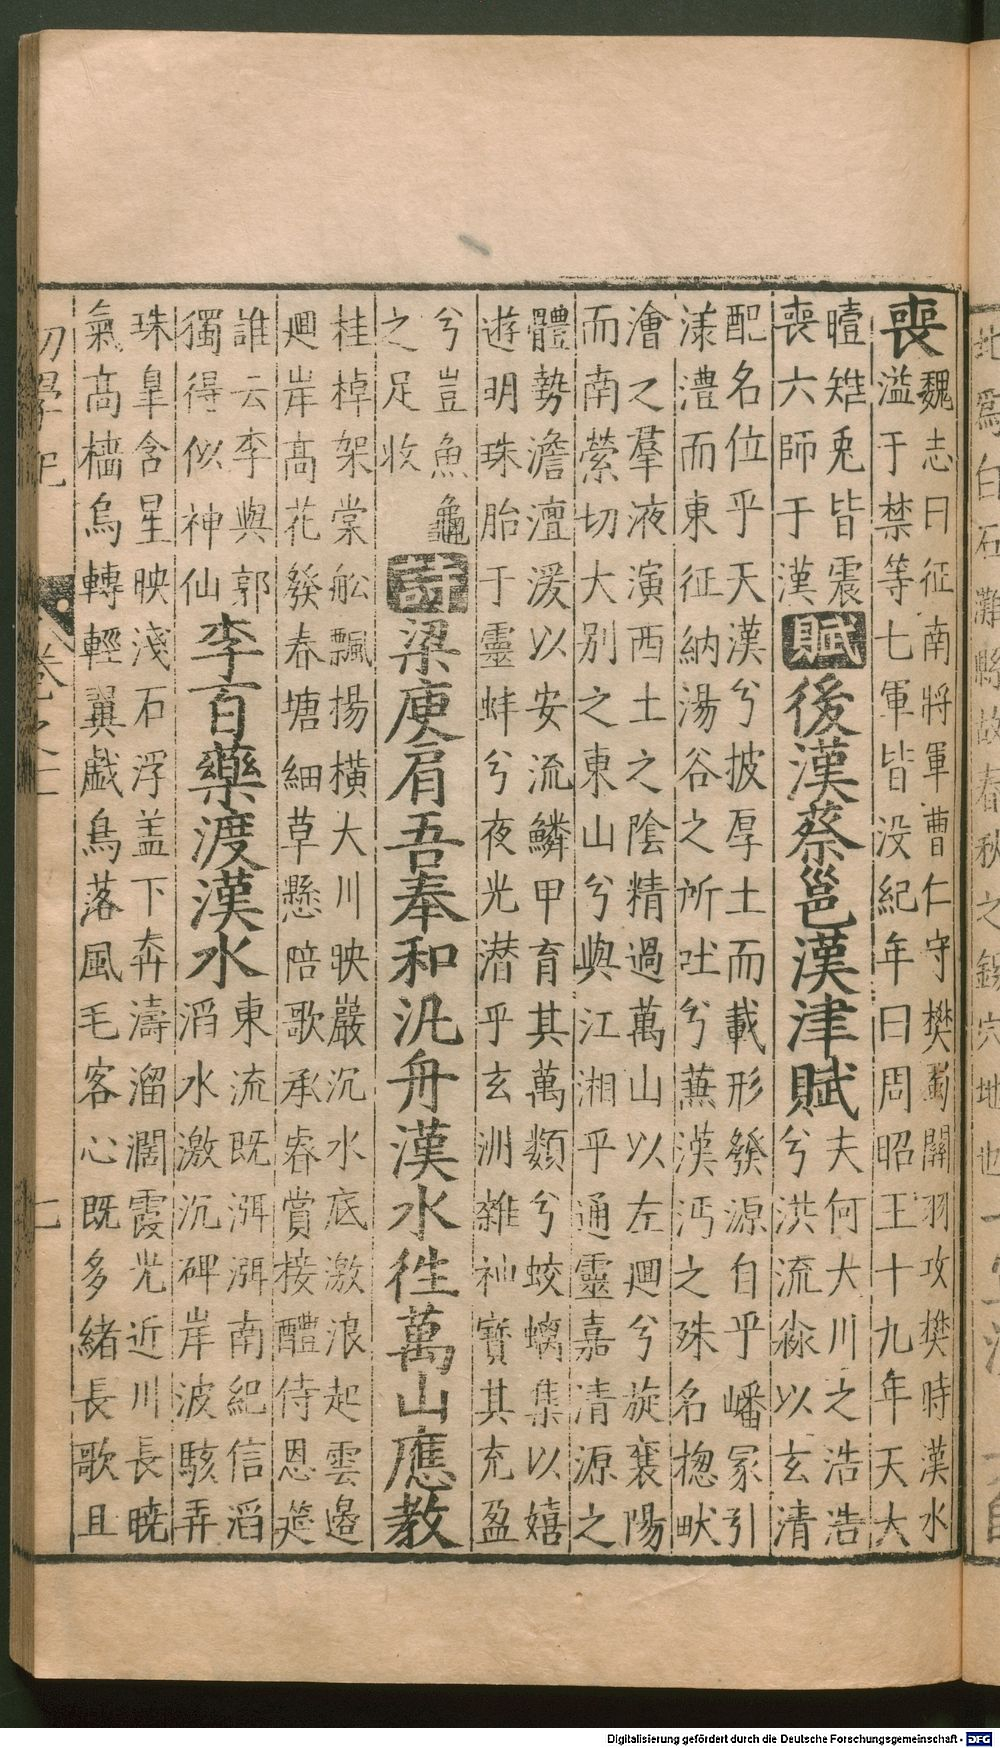 喪
魏志曰征南將軍曹仁守樊蜀關羽攻樊時漢水
溢于禁等七軍皆没紀年曰周昭王十九年天大
曀雉兎皆震
喪六師于漢
賦
後漢蔡邕漢津賦
夫何大川之浩浩
兮洪流淼以玄清
配名位乎天漢兮披厚土而載形發源自乎嶓冢引
漾澧而東征納湯谷之所吐兮蕪漢沔之殊名揔畎
澮之羣液演西土之隂精過萬山以左廻兮旋襄陽
而南縈切大别之東山兮與江湘乎通靈嘉清源之
體勢澹澶湲以安流鱗甲育其萬類兮蛟螭集以嬉
遊明珠胎于靈蚌兮夜光潜乎玄洲雜神寳其充盈
兮豈魚龜
之足收
詩
梁庾肩吾奉和汎舟漢水徃萬山應教
桂棹架棠舩飄揚横大川映巖沉水底激浪起雲邉
廻岸高花發春塘細草懸陪歌承睿賞接醴侍恩筵
誰云李與郭
獨得似神仙
李百藥渡漢水
東流既瀰瀰南紀信滔
滔水激沉碑岸波駭弄
珠皐含星映淺石浮盖下奔濤溜濶霞光近川長曉
氣高檣烏轉輕翼戯鳥落風毛客心既多緒長歌且
初學記
卷之七
七
Digitalisierung gefördert durch die Deutsche Forschungsgemeinschaft - DFG